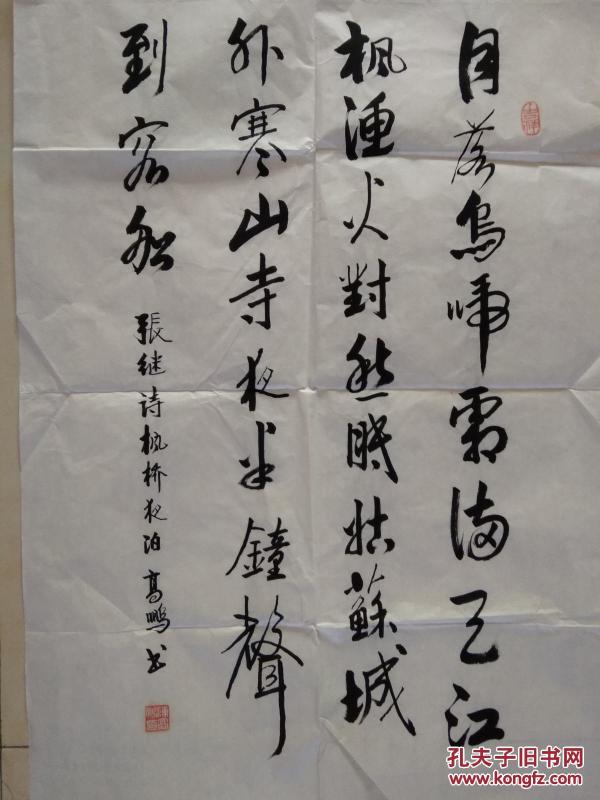 月落烏啼霜滿天江
枫漁火對愁眠姑蘇城
外寒山寺夜半鐘聲
到客船
張继诗枫桥夜泊 高鹏书
孔夫子旧书网
www.kongfz.com